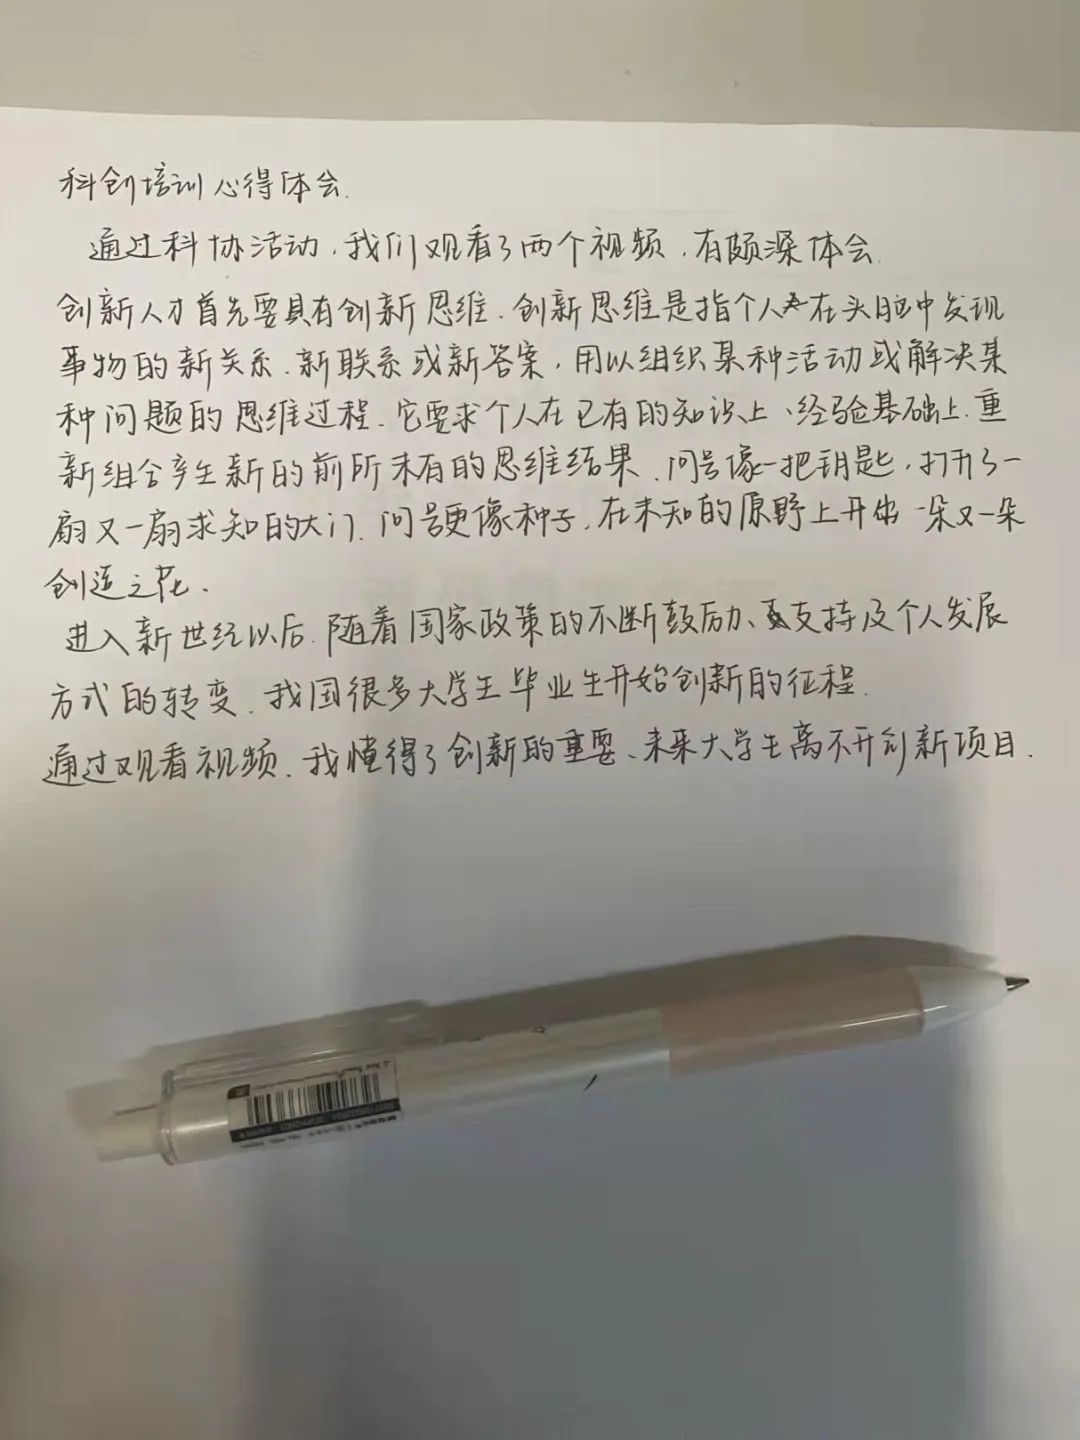 科创培训心得体会.
通过科协活动,我们观看了两个视频,有颇深体会.
创新人才首先要具有创新思维.创新思维是指个人在头脑中发现
事物的新关系、新联系或新答案,用以组织某种活动或解决某
种问题的思维过程.它要求个人在已有的知识上、经验基础上.重
新组合产生新的前所未有的思维结果.问号像一把钥匙,打开了一
扇又一扇求知的大门.问号更像种子,在未知的原野上开出一朵又一朵
创造之花.
进入新世纪以后.随着国家政策的不断鼓励、支持及个人发展
方式的转变.我国很多大学生毕业生开始创新的征程.
通过观看视频.我懂得了创新的重要、未来大学生离不开创新项目.